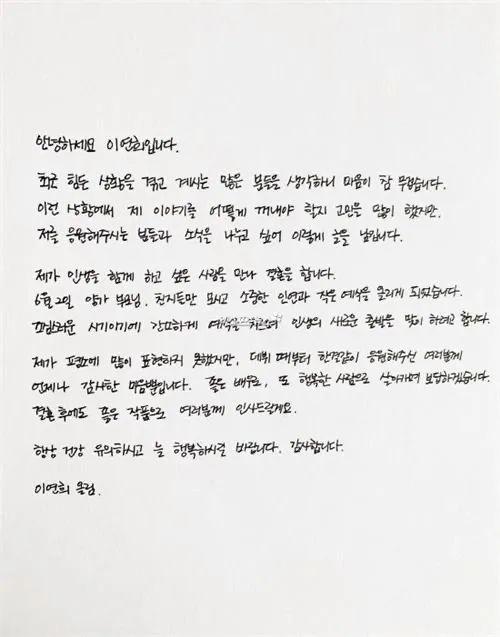 안녕하세요 이연희입니다.
최근 힘든 상황을 겪고 계시는 많은 분들을 생각하니 마음이 참 무겁습니다.
이런 상황에서 제 이야기를 어떻게 꺼내야 할지 고민을 많이 했지만,
저를 응원해주시는 분들과 소식을 나누고 싶어 이렇게 글을 남깁니다.
제가 인생을 함께 하고 싶은 사람을 만나 결혼을 합니다.
6월 2일 양가 부모님, 친지들만 모시고 소중한 인연과 작은 예식을 올리게 되었습니다.
조심스러운 시기이기에 간소하게 예식을 치르며 인생의 새로운 출발을 맞이하려고 합니다.
제가 평소에 많이 표현하지 못했지만, 데뷔 때부터 한결같이 응원해주신 여러분께
언제나 감사한 마음뿐입니다. 좋은 배우로, 또 행복한 사람으로 살아가며 보답하겠습니다.
결혼 후에도 좋은 작품으로 여러분께 인사드릴게요.
항상 건강 유의하시고 늘 행복하시길 바랍니다. 감사합니다.
이연희 올림.